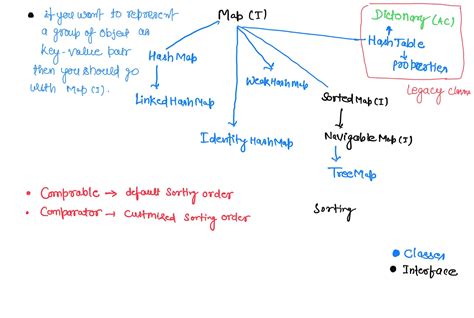 • if you want to represent
a group of object as
key-value pair
then you should go
with Map(I).
Map (I)
HashMap
LinkedHashMap
WeakHashMap
Identity HashMap
Sorted Map(I)
Navigable Map(I)
TreeMap
Dictonary (AC)
HashTable
properties
Legacy classes
• Comprable → default Sorting order
• Comparator → custmised Sorting order
Sorting
• Classes
• Interface